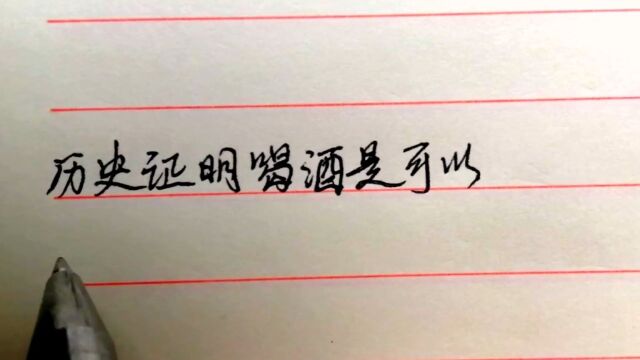 历史证明喝酒是可以